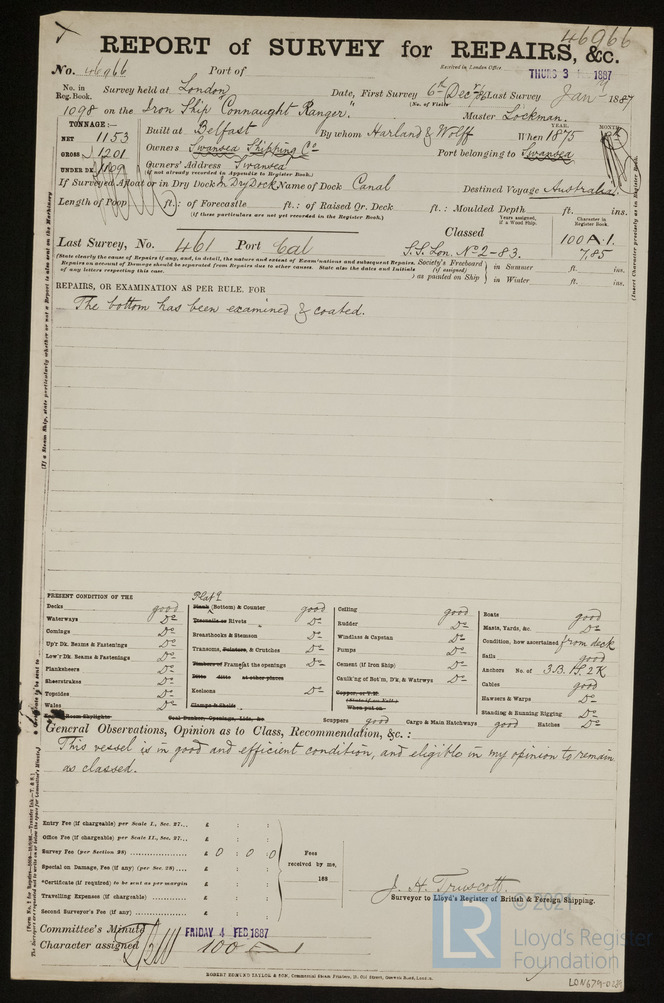 46966
REPORT of SURVEY for REPAIRS, &c.
No. 46966 Port of
Received in London Office
THURS 3 1887
No. in Reg. Book. Survey held at London Date, First Survey 6th Dec 86 Last Survey Jany 1887
(No. of Visits
1098 on the Iron Ship "Connaught Ranger." Master Lockman.
TONNAGE:—
NET 1153
GROSS 1201
UNDER DK. 1109
Built at Belfast By whom Harland & Wolff When 1875
YEAR. MONTH.
Owners Swansea Shipping Co Port belonging to Swansea
Owners' Address Swansea
(If not already recorded in Appendix to Register Book.)
If Surveyed Afloat or in Dry Dock In Dry Dock Name of Dock Canal Destined Voyage Australia
Length of Poop ft.: of Forecastle ft.: of Raised Qr. Deck ft.: Moulded Depth ft. ins.
(If these particulars are not yet recorded in the Register Book.)
Years assigned, if a Wood Ship.
Character in Register Book.
Last Survey, No. 461 Port Cal Classed 100 A.1.
S.S. Lon. No 2-83. 7,85
(State clearly the cause of Repairs if any, and, in detail, the nature and extent of Examinations and subsequent Repairs.
Repairs on account of Damage should be separated from Repairs due to other causes. State also the dates and Initials
of any letters respecting this case.
Society's Freeboard (if assigned) as painted on Ship
in Summer ft. ins.
in Winter ft. ins.
(Insert Character precisely as in Register Book.
REPAIRS, OR EXAMINATION AS PER RULE. FOR
The bottom has been examined & coated.
PRESENT CONDITION OF THE
Decks good
Waterways Do
Comings Do
Up'r Dk. Beams & Fastenings Do
Low'r Dk. Beams & Fastenings Do
Planksheers Do
Sheerstrakes Do
Topsides Do
Wales Do
Room Skylights
Platg
Plank (Bottom) & Counter good
Treenails or Rivets Do
Breasthooks & Stemson Do
Transoms, Pointers, & Crutches Do
Timbers of Frames at the openings Do
Ditto ditto at other places
Keelsons Do
Clamps & Shelfs
Coal Bunker, Openings, Lids, &c.
Ceiling good
Rudder Do
Windlass & Capstan Do
Pumps Do
Cement (if Iron Ship) Do
Caulk'g of Bot'm, D'k, & Watrwys Do
Copper, or Y.M.
(State if on Felt)
When put on
Scuppers good Cargo & Main Hatchways good Hatches Do
Boats good
Masts, Yards, &c. Do
Condition, how ascertained from deck
Sails good
Anchors No. of 3.B. 1S. 2K
Cables good
Hawsers & Warps Do
Standing & Running Rigging Do
General Observations, Opinion as to Class, Recommendation, &c.:
This vessel is in good and efficient condition, and eligible in my opinion to remain
as classed.
Entry Fee (if chargeable) per Scale I., Sec. 27... £ : :
Office Fee (if chargeable) per Scale II., Sec. 27... £ : :
Survey Fee (per Section 28) £ 0 : 0 : 0
Special on Damage, Fee (if any) (per Sec. 28) £ : :
*Certificate (if required) to be sent as per margin £ : :
Travelling Expenses (if chargeable) £ : :
Second Surveyor's Fee (if any) £ : :
Fees received by me, 188
J. H. Truscott.
Surveyor to Lloyd's Register of British & Foreign Shipping.
Committee's Minute FRIDAY 4 FEB 1887
Character assigned 100 A 1
ROBERT EDMUND TAYLOR & SON, Commercial Steam Printers, 19, Old Street, Goswell Road, London.
© 2021
LR
Lloyd's Register
Foundation
LON679-0289